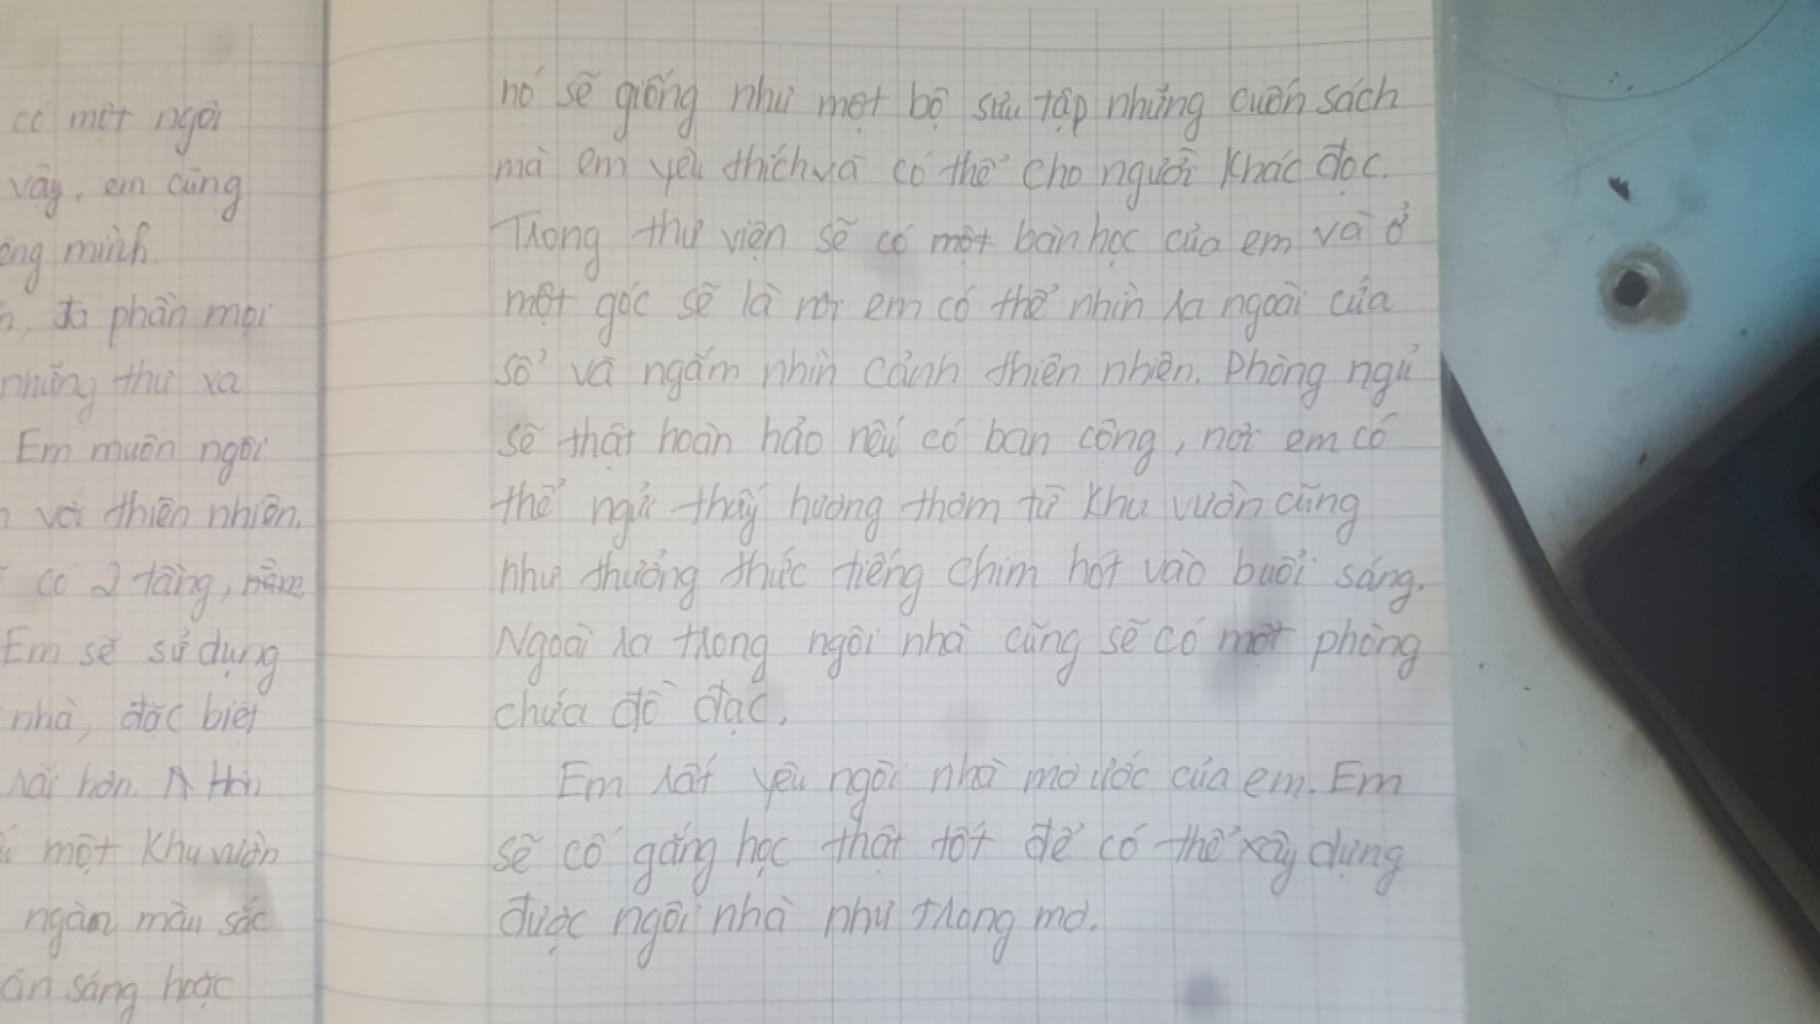 có một ngôi
vậy, em cũng
minh.
đa phần mọi
những thứ xa
Em muốn ngôi
với thiên nhiên.
có 2 tầng, nằm
Em sẽ sử dụng
nhà, đặc biệt
hơn.
một khu vườn
ngàn màu sắc
sáng hoặc
nó sẽ giống như một bộ sưu tập những cuốn sách
mà em yêu thích và có thể cho người khác đọc.
Trong thư viện sẽ có một bàn học của em và ở
một góc sẽ là nơi em có thể nhìn ra ngoài cửa
sổ và ngắm nhìn cảnh thiên nhiên. Phòng ngủ
sẽ thật hoàn hảo nếu có ban công, nơi em có
thể ngửi thấy hương thơm từ khu vườn cũng
như thưởng thức tiếng chim hót vào buổi sáng.
Ngoài ra trong ngôi nhà cũng sẽ có một phòng
chứa đồ đạc.
Em rất yêu ngôi nhà mơ ước của em. Em
sẽ cố gắng học thật tốt để có thể xây dựng
được ngôi nhà như trong mơ.